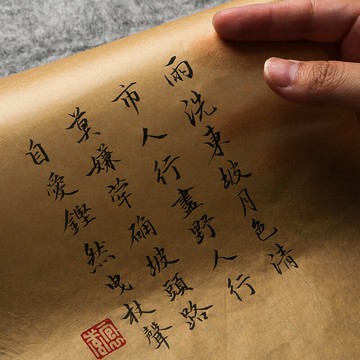 雨洗東坡月色清
市人行盡野人行
莫嫌荦确坡頭路
自愛鏗然曳杖聲